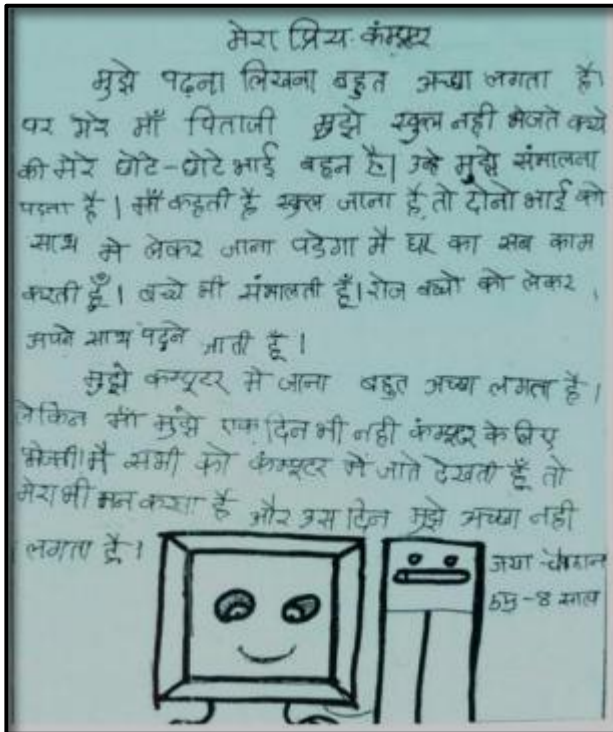 मेरा प्रिय कंम्प्यूटर
मुझे पढ़ना लिखना बहुत अच्छा लगता है।
पर मेरे माँ पिताजी मुझे स्कुल नही भेजते क्यो
की मेरे छोटे-छोटे भाई बहन है। उन्हे मुझे संभालना
पडता है। माँ कहती है स्कुल जाना है तो दोनो भाई को
साथ मे लेकर जाना पडेगा मै घर का सब काम
करती हूँ। बच्चे भी संभालती हूँ। रोज बच्चो को लेकर
अपने साथ पढ़ने जाती हूँ।
मुझे कम्प्यूटर मे जाना बहुत अच्छा लगता है।
लेकिन माँ मुझे एक दिन भी नही कंम्प्यूटर के लिए
भेजती। मै सभी को कंम्प्यूटर मे जाते देखती हूँ तो
मेरा भी मन करता है और उस दिन मुझे अच्छा नही
लगता है।
जया चौहान
उम्र-8 साल